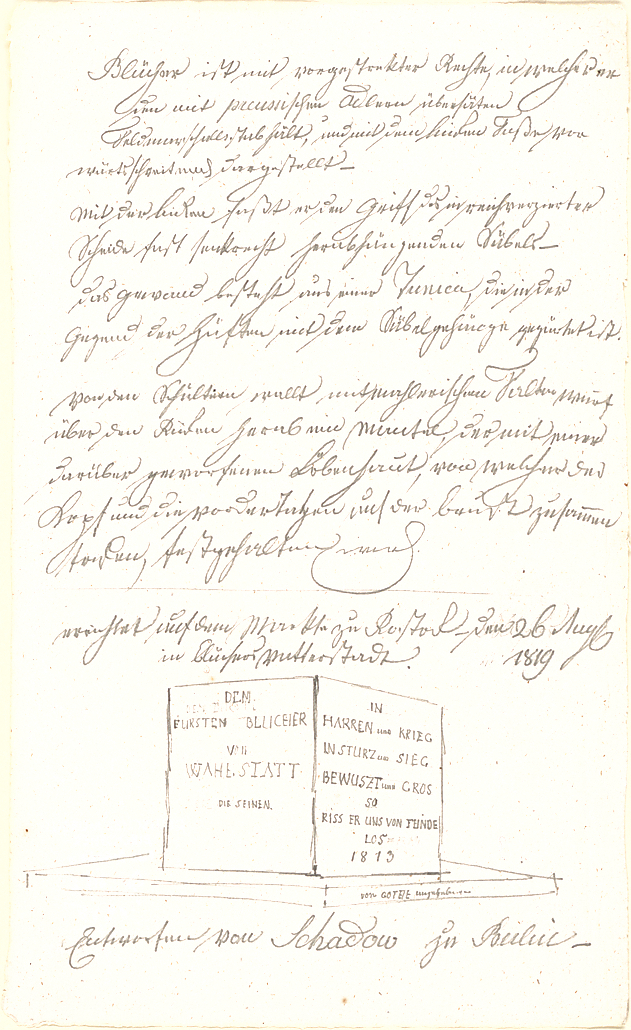 Blücher ist mit vorgestrekter Rechte, in welcher er
den mit preussischen Adlern übersäten
Feldmarschallsstab hält, und mit dem linken Fuße vor
wärtsschreitend dargestellt_
Mit der linken faßt er den Griff des in reichverzierter
Scheide fast senkrecht herabhängenden Säbels_
das gewand besteht aus einer Tunica, die in der
Gegend der Hüften mit dem Säbelgehänge gegürtet ist.
Von den Schultern wallt mit mahlerischem Faltenwurf
über den Rüken herab ein Mantel, der mit einer
darüber geworfenen Löbenhaut, von welcher der
Kopf und die vordertatzen auf der brust zusammen
festgehalten wird.
errichtet auf dem Markte zu Rostok_ den 26 Augst
in Blüchers Vatterstadt. 1819
DEM
FURSTEN BLUCHER
VON
WAHLSTATT
DIE SEINEN.
IN
HARREN und KRIEG
IN STURZ und SIEG
BEWUSZT und GROS
SO
RISS ER UNS VON FEINDE
LOS
1813
VON GOTHE angegeben
Entworfen von Schadow zu Berlin_